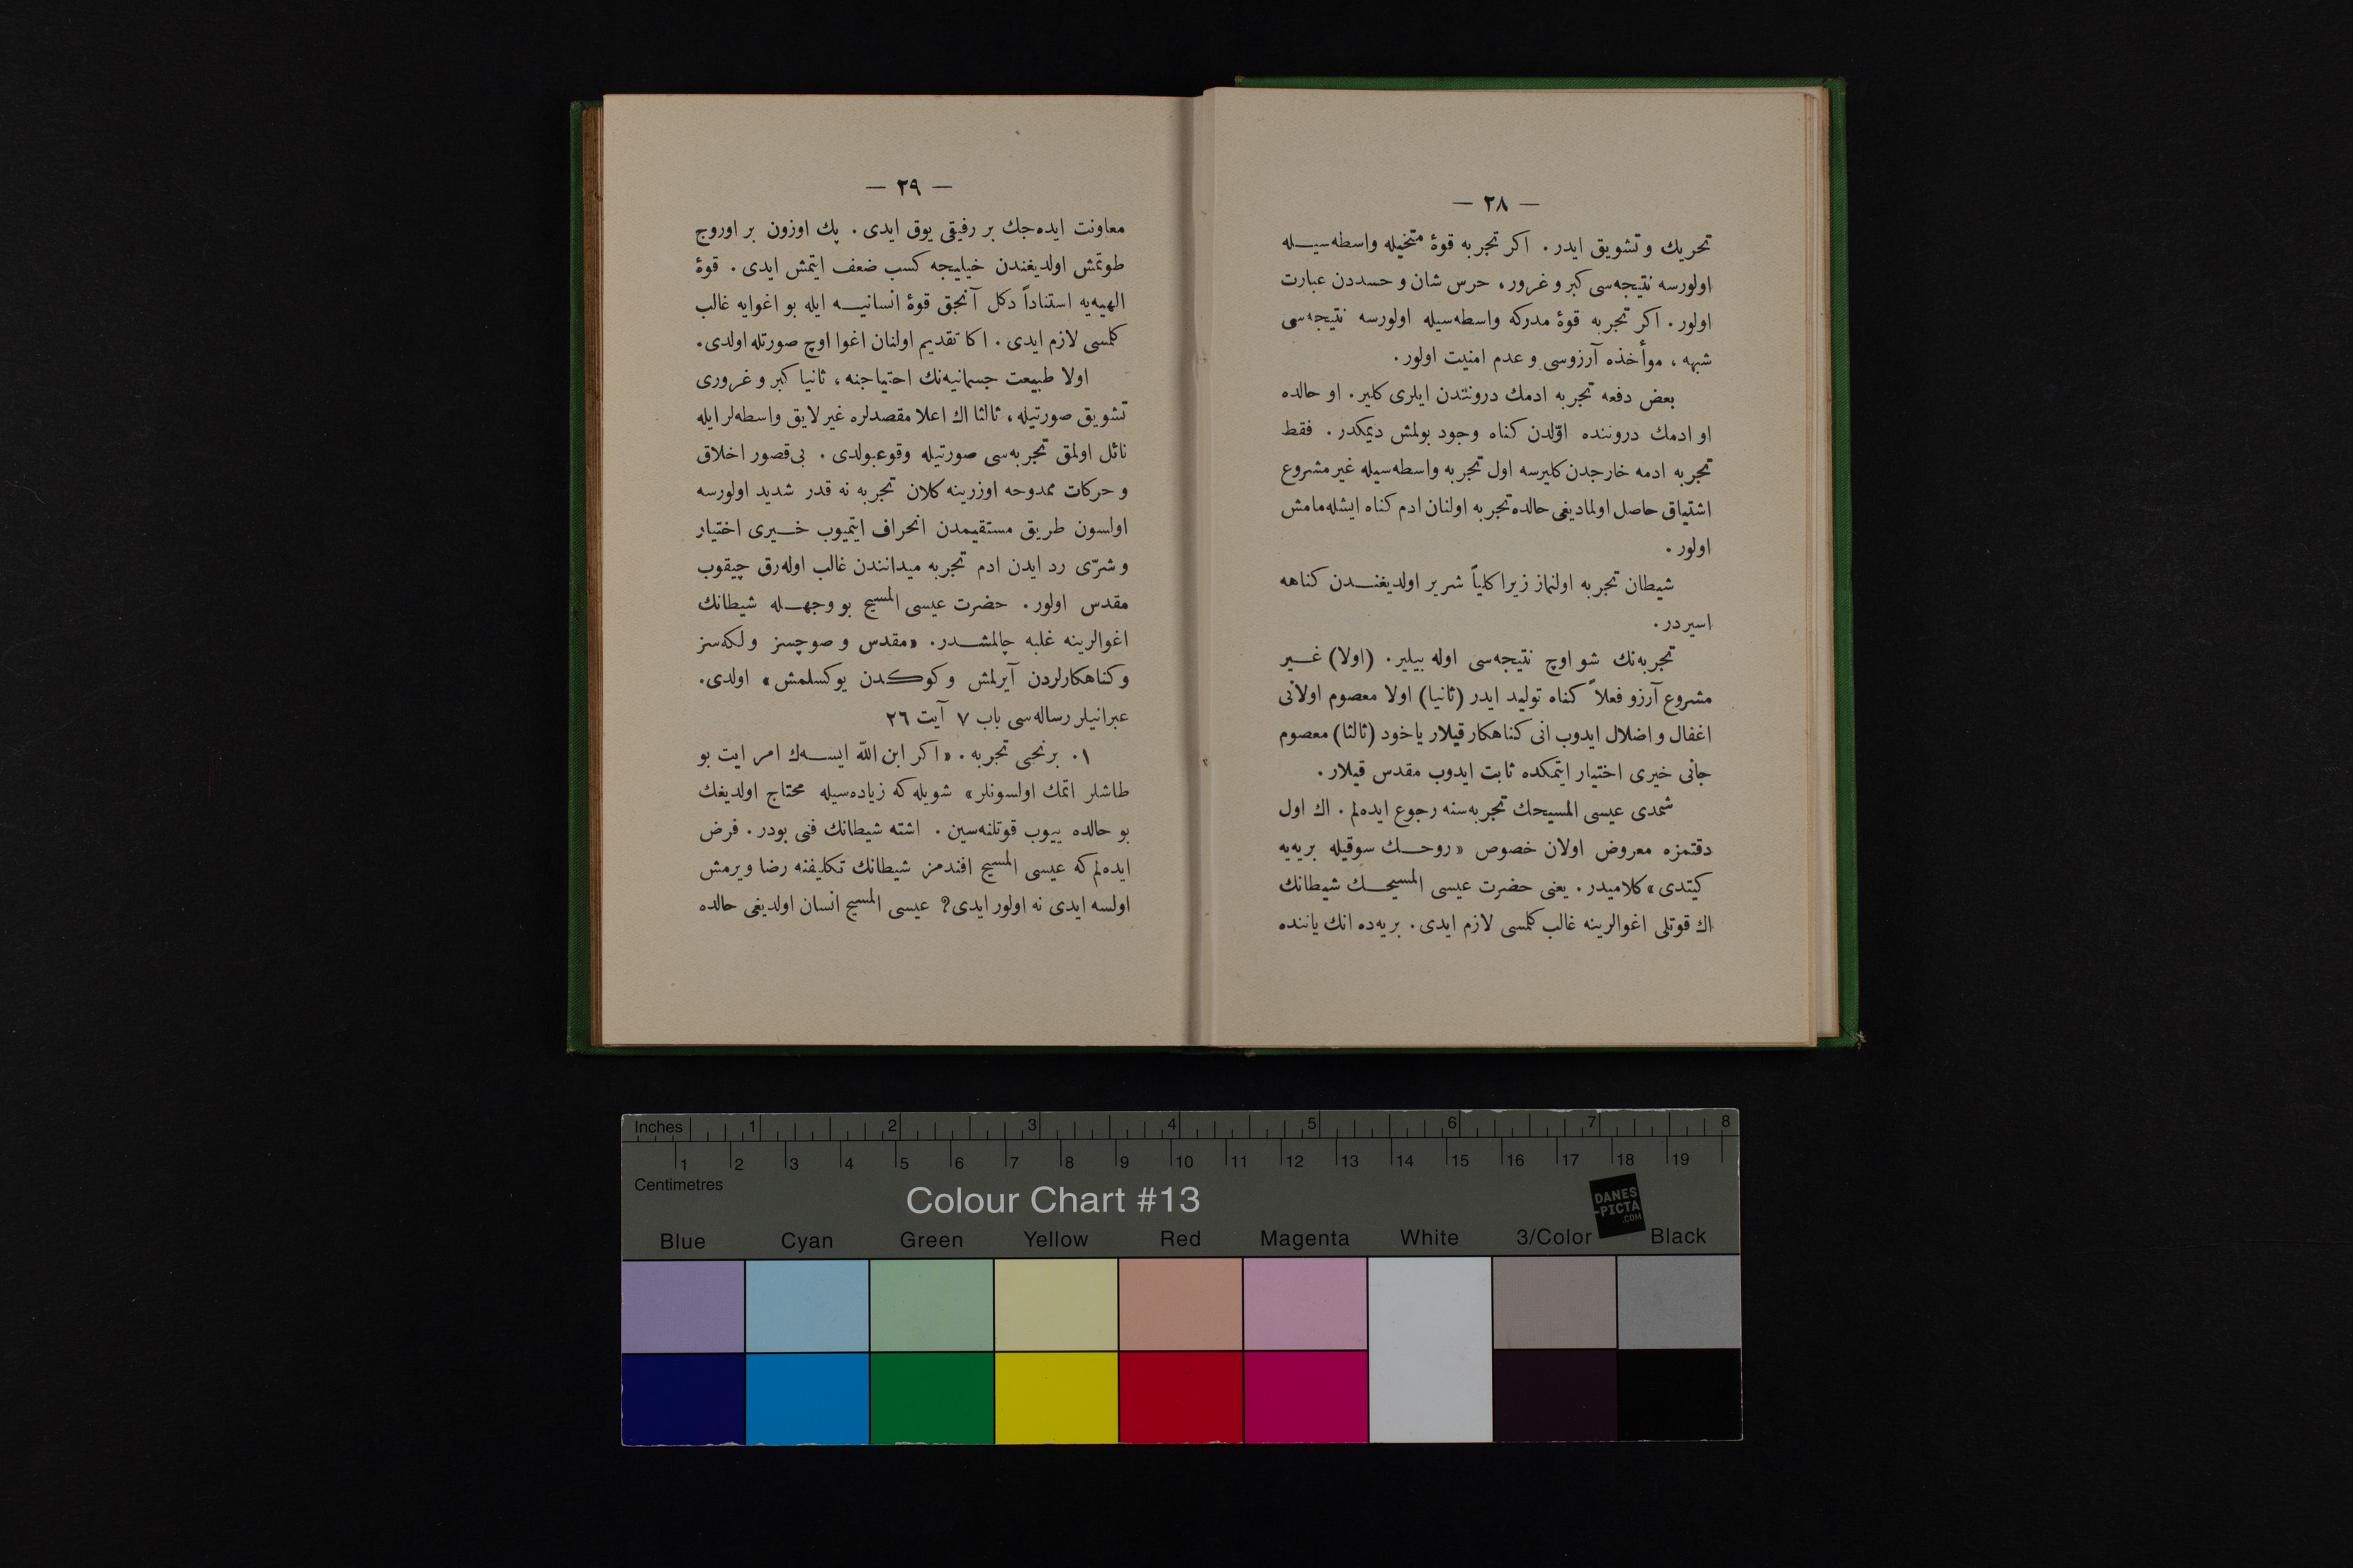 — ٢٨ —
تحريك وتشويق ايدر. اكر تجربه قوهٔ متخيله واسطه‌سيــله
اولورسه نتيجه‌سى كبر و غرور، حرس شان و حسددن عبارت
اولور. اكر تجربه قوهٔ مدركه واسطه‌سيله اولورسه نتيجه‌سى
شبهه ، موأخذه آرزوسى و عدم امنيت اولور.
بعض دفعه تجربه ادمك دروننٖدن ايلرى كلير. او حالده
او ادمك دروننده اوّلدن كناه وجود بولمش ديمكدر. فقط
تجربه ادمه خارجدن كليرسه اول تجربه واسطه‌سيله غير مشروع
اشتياق حاصل اولماديغى حالده تجربه اولنان ادم كناه ايشله‌مامش
اولور.
شيطان تجربه اولنماز زيرا كلياً شرير اولديغنــدن كناهه
اسيردر.
تجربه‌نك شو اوچ نتيجه‌سى اوله بيلير. (اولا) غــير
مشروع آرزو فعلاً كناه توليد ايدر (ثانيا) اولا معصوم اولانى
اغفال و اضلال ايدوب انى كناهكار قيلار ياخود (ثالثا) معصوم
جانى خيرى اختيار ايتمكده ثابت ايدوب مقدس قيلار.
شمدى عيسى المسيحك تجربه‌سنه رجوع ايده‌لم. اك اول
دقتمزه معروض اولان خصوص «روحــك سوقيله بريه‌يه
كيتدى» كلاميدر. يعنى حضرت عيسى المسيحــك شيطانك
اك قوتلى اغوالرينه غالب كلمسى لازم ايدى. بريه‌ده انك ياننده
— ٢٩ —
معاونت ايده‌جك بر رفيقى يوق ايدى. پك اوزون بر اوروج
طوتمش اولديغندن خيليجه كسب ضعف ايتمش ايدى. قوهٔ
الهيه‌يه استناداً دكل آنجق قوهٔ انسانيــه ايله بو اغوايه غالب
كلمسى لازم ايدى. اكا تقديم اولنان اغوا اوچ صورتله اولدى.
اولا طبيعت جسمانيه‌نك احتياجنه ، ثانيا كبر و غرورى
تشويق صورتيله ، ثالثا اك اعلا مقصدلره غير لايق واسطه‌لر ايله
نائل اولمق تجربه‌سى صورتيله وقوعبولدى. بى‌قصور اخلاق
و حركات ممدوحه اوزرينه كلان تجربه نه قدر شديد اولورسه
اولسون طريق مستقيمدن انحراف ايتميوب خــيرى اختيار
و شرّى رد ايدن ادم تجربه ميدانندن غالب اوله‌رق چيقوب
مقدس اولور. حضرت عيسى المسيح بو وجهــله شيطانك
اغوالرينه غلبه چالمشــدر. «مقدس و صوچسز ولكه‌سز
و كناهكارلردن آيرلمش و كوكدن يوكسلمش» اولدى.
عبرانيلر رساله‌سى باب ٧ آيت ٢٦
١. برنجى تجربه. «اكر ابن اللّه ايســه‌ك امر ايت بو
طاشلر اتمك اولسونلر» شويله كه زياده‌سيله محتاج اولديغك
بو حالده ييوب قوتلنه‌سين. اشته شيطانك فنى بودر. فرض
ايده‌لم كه عيسى المسيح افندمز شيطانك تكليفنه رضا ويرمش
اولسه ايدى نه اولور ايدى? عيسى المسيح انسان اولديغى حالده
Inches 1 2 3 4 5 6 7 8
1 2 3 4 5 6 7 8 9 10 11 12 13 14 15 16 17 18 19
Centimetres
Colour Chart #13
DANES
-PICTA
.COM
Blue Cyan Green Yellow Red Magenta White 3/Color Black